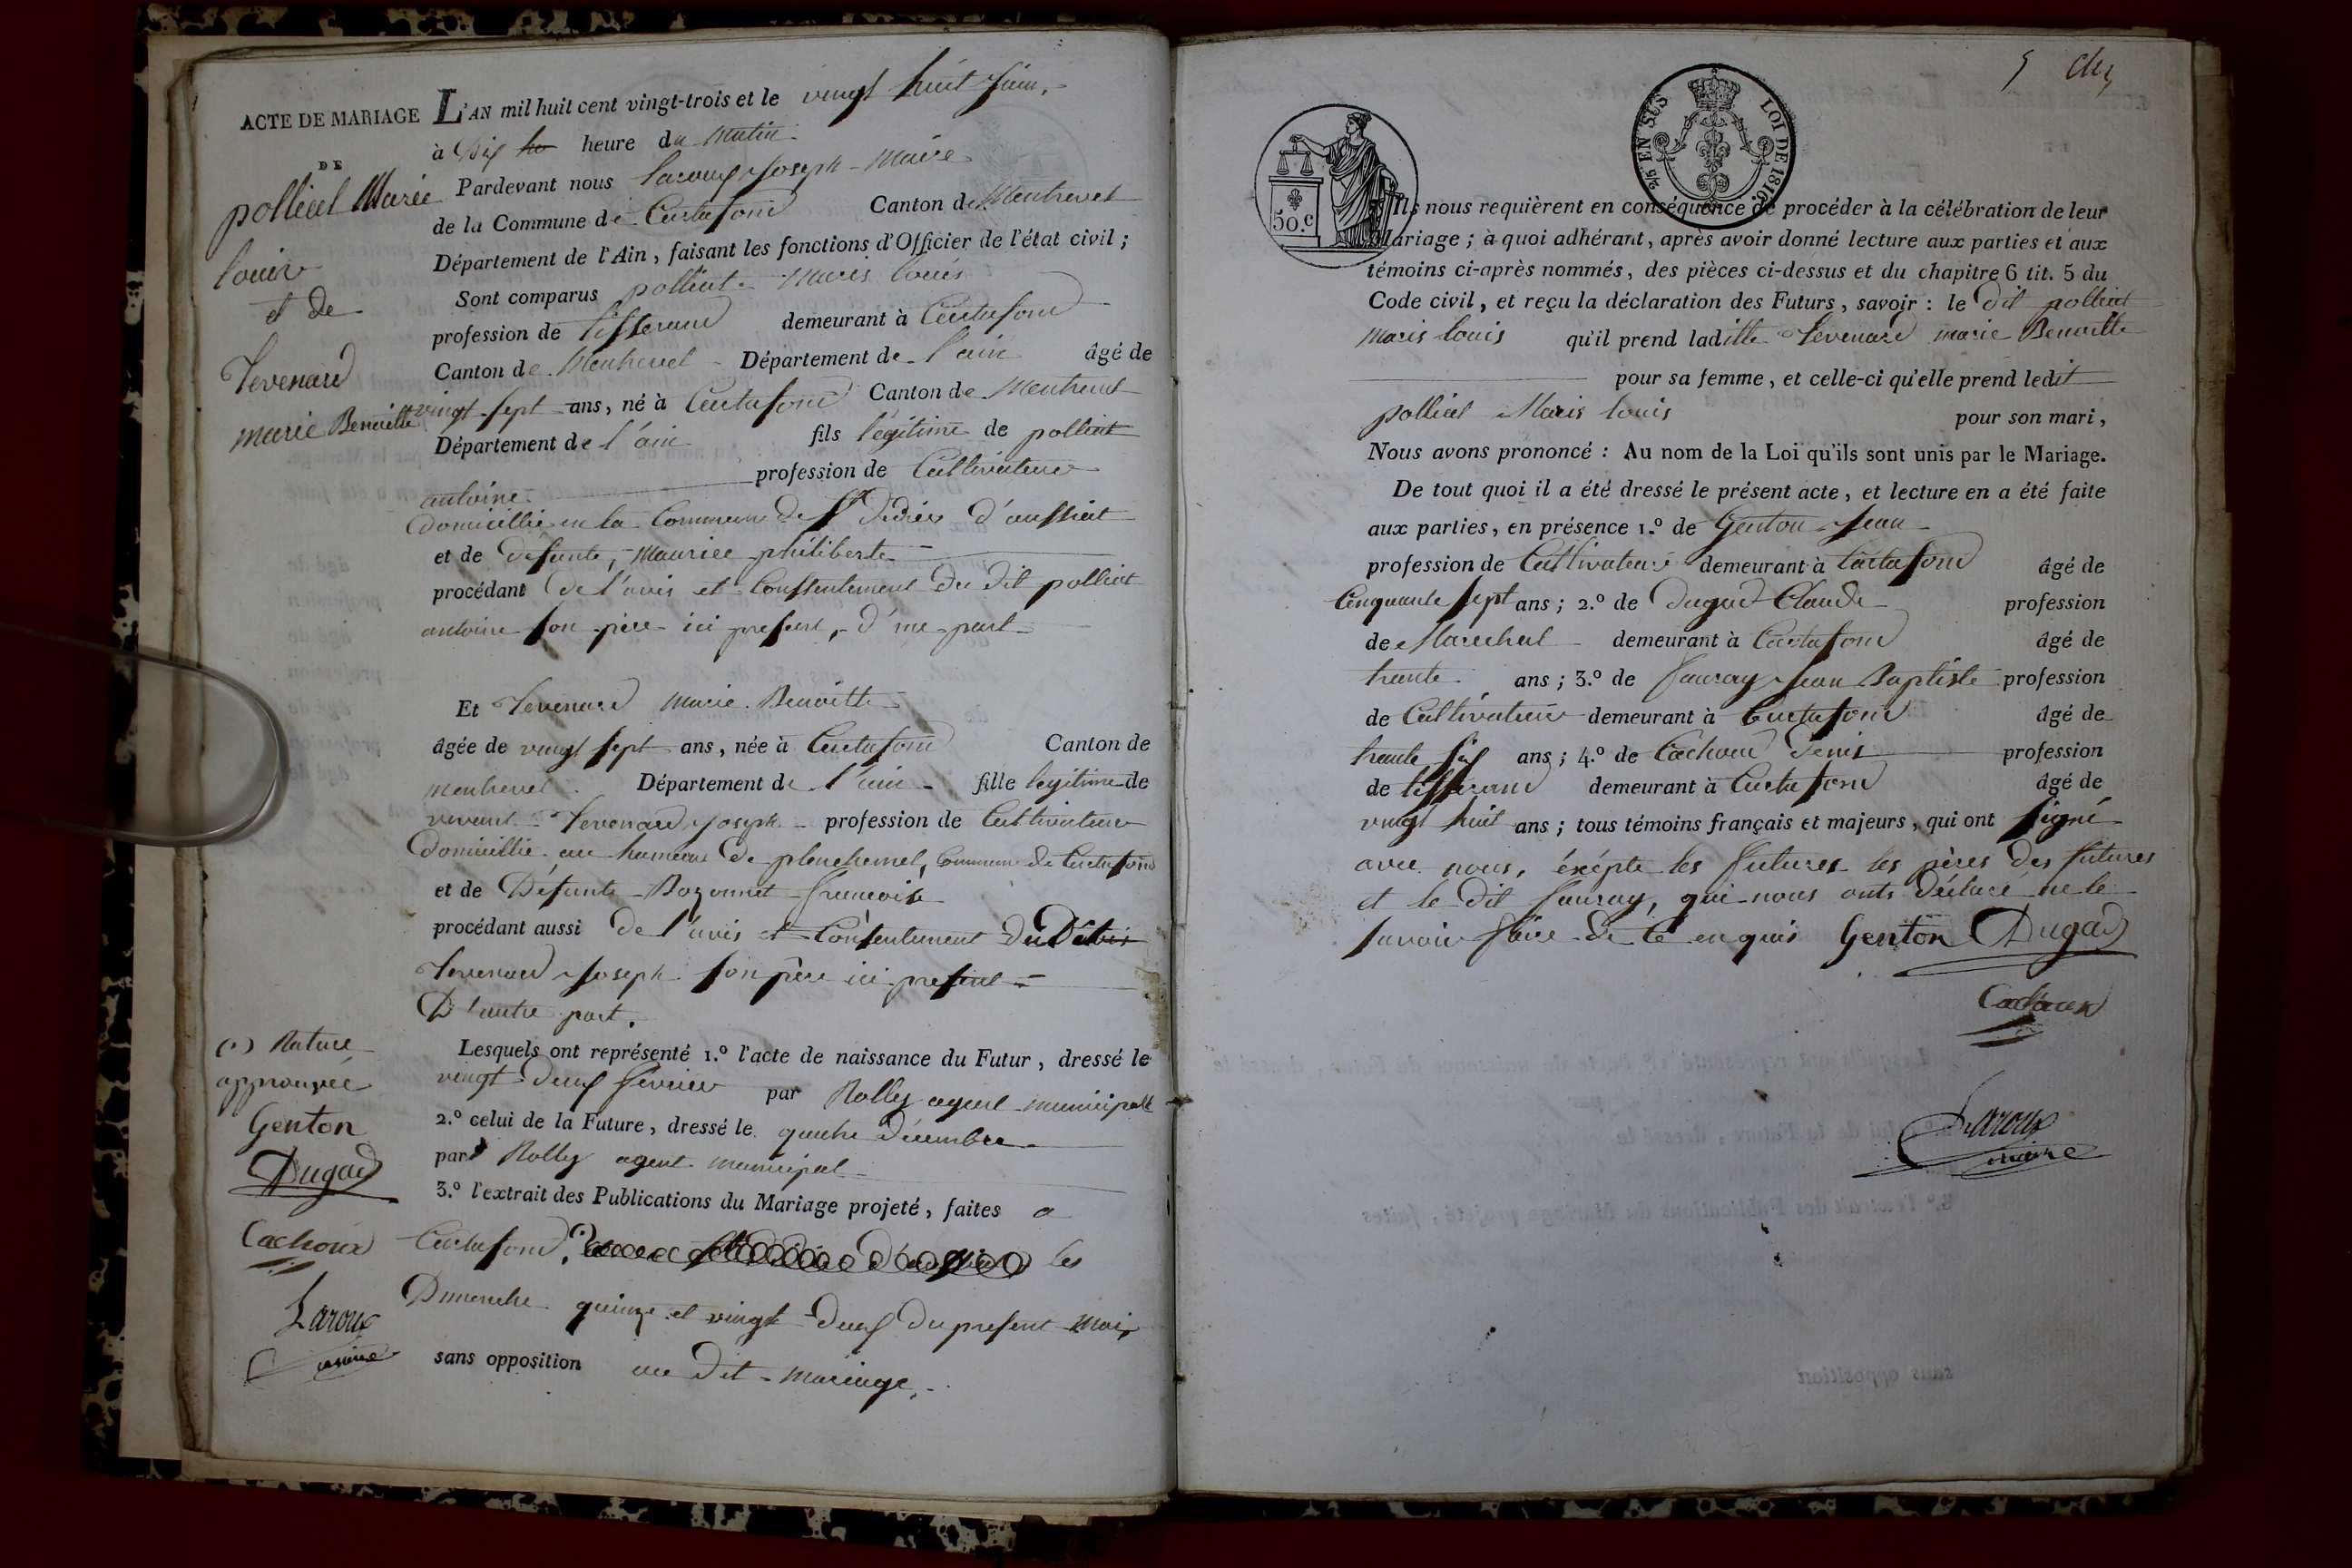 ACTE DE MARIAGE
DE
polliat Marie
louis
et de
Tevenard
marie Benoitte
L'AN mil huit cent vingt-trois et le vingt huit juin,
à Dix heure du Matin
Pardevant nous Laroux Joseph Maire
de la Commune de Curtafond Canton de Montrevel
Département de l'Ain, faisant les fonctions d'Officier de l'état civil;
Sont comparus polliat Maris louis
profession de tisserand demeurant à Curtafond
Canton de Montrevel Département de l'ain âgé de
vingt sept ans, né à Curtafond Canton de Montrevel
Département de l'ain fils légitime de polliat
antoine profession de Cultivateur
Domicillié en la Commune de St Didier d'aussiat
et de défunte, Maurice philiberte
procédant de l'avis et Consentement du dit polliat
antoine son père ici present, d'une part
Et Tevenard Marie Benoitte
âgée de vingt sept ans, née à Curtafond Canton de
Montrevel Département de l'ain fille legitime de
vivant Tevenard Joseph profession de Cultivateur
Domicillié au hameau de planchemel, Commune de Curtafond
et de Défunte Bozonnet francoise
procédant aussi de l'avis et Consentement du
Tevenard Joseph son père ici present
D'autre part.
Lesquels ont représenté 1.º l'acte de naissance du Futur, dressé le
vingt deux fevrier par Rolly agent municipale
2.º celui de la Future, dressé le quatre décembre
par Rolly agent municipal
3.º l'extrait des Publications du Mariage projeté, faites a
Curtafond, les
Dimenche quinze et vingt deux du present Mois
sans opposition au dit mariage,
(1) Rature
approuvée
Genton
Dugad
Cachoux
Laroux
maire
50 c
2/5 EN SUS LOI DE 1816
Ils nous requièrent en conséquence de procéder à la célébration de leur
Mariage; à quoi adhérant, après avoir donné lecture aux parties et aux
témoins ci-après nommés, des pièces ci-dessus et du chapitre 6 tit. 5 du
Code civil, et reçu la déclaration des Futurs, savoir: le dit polliat
Maris louis qu'il prend laditte Tevenard marie Benoitte
pour sa femme, et celle-ci qu'elle prend ledit
polliat Maris louis pour son mari,
Nous avons prononcé: Au nom de la Loi qu'ils sont unis par le Mariage.
De tout quoi il a été dressé le présent acte, et lecture en a été faite
aux parties, en présence 1.º de Genton Jean
profession de Cultivateur demeurant à Curtafond âgé de
Cinquante sept ans; 2.º de Dugad Claude profession
de Marechal demeurant à Curtafond âgé de
trente ans; 3.º de fauray Jean Baptiste profession
de Cultivateur demeurant à Curtafond âgé de
trente six ans; 4.º de Cachoux Denis profession
de tisserand demeurant à Curtafond âgé de
vingt huit ans; tous témoins français et majeurs, qui ont signé
avec nous, éxépte les futures les pères des futures
et le dit fauray, qui nous onts déclaré ne le
savoir faire de ce enquis Genton Dugad
Cachoux
Laroux
maire